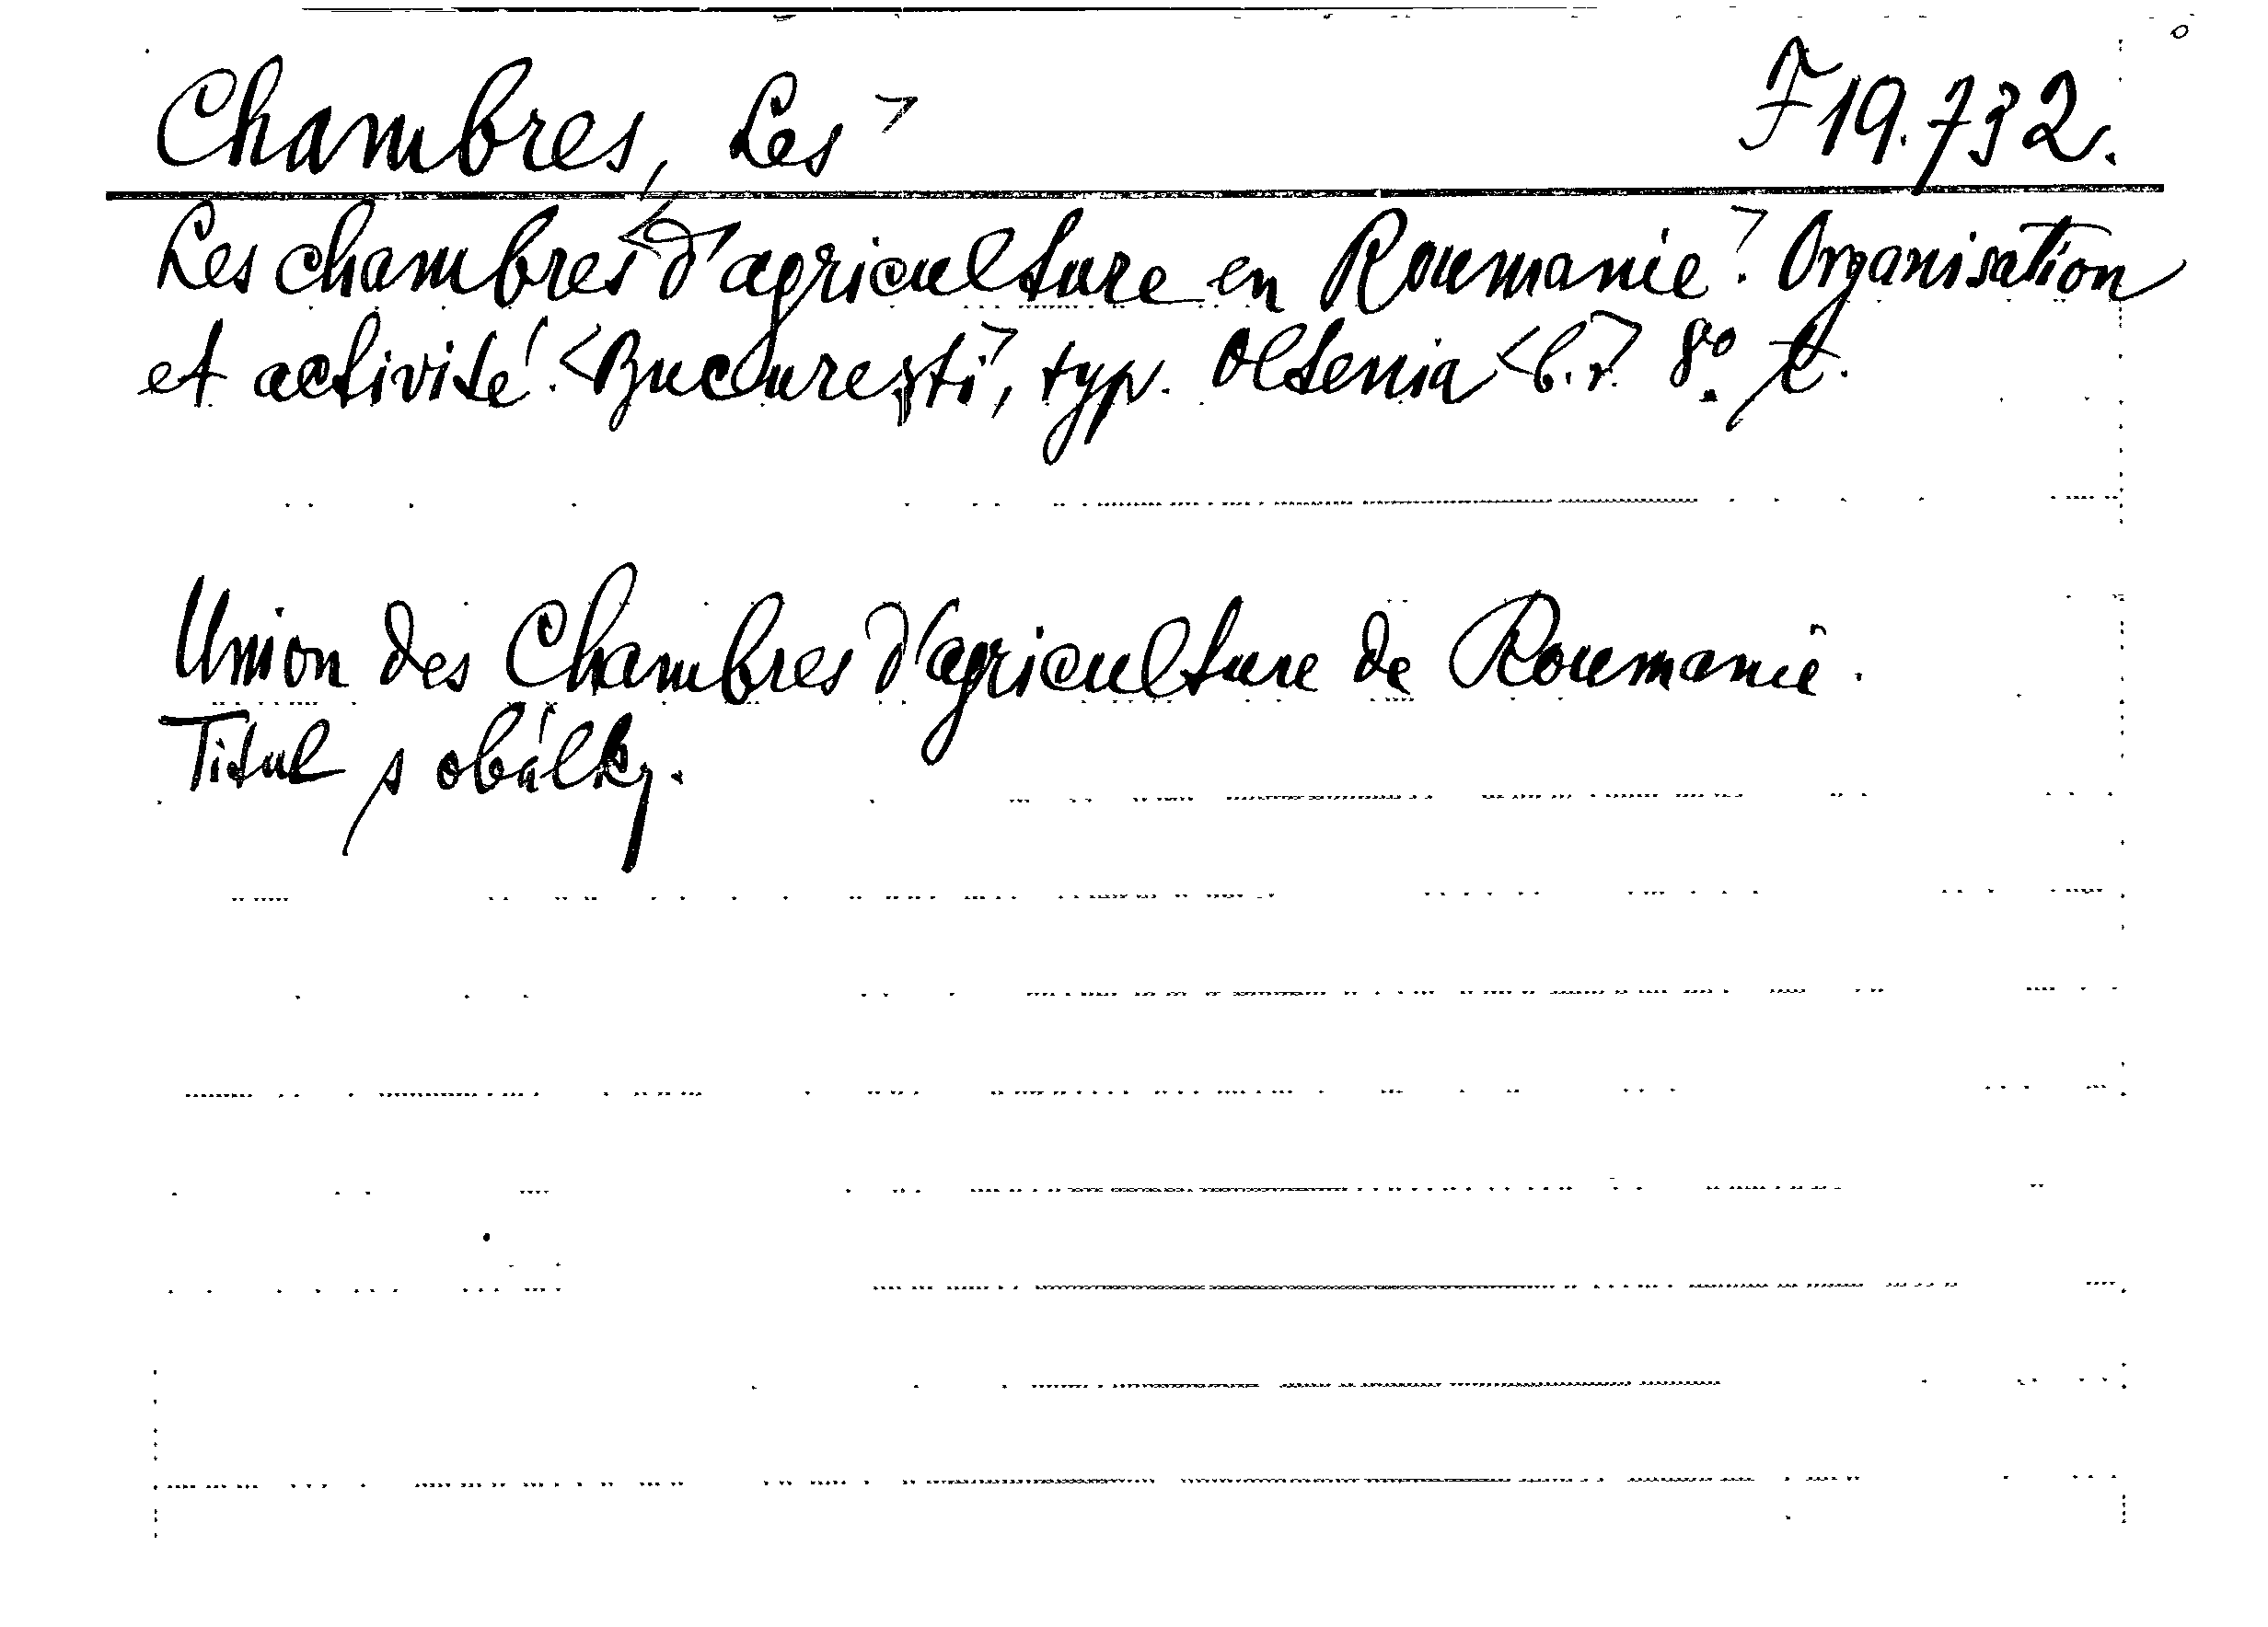 Chambres, Les> F 19.732.
Les chambres <d'agriculture en Roumanie>. Organisation
et activité. <Bucureşti>, typ. Oltenia <b.r.> 8°. tt.
Union des Chambres d'agriculture de Roumanie.
Titul s obálky.